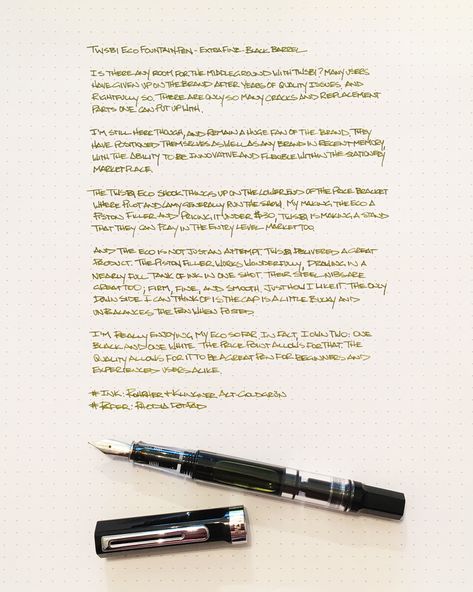 TWSBI ECO FOUNTAIN PEN - EXTRA FINE - BLACK BARREL
IS THERE ANY ROOM FOR THE MIDDLEGROUND WITH TWSBI? MANY USERS
HAVE GIVEN UP ON THE BRAND AFTER YEARS OF QUALITY ISSUES, AND
RIGHTFULLY SO. THERE ARE ONLY SO MANY CRACKS AND REPLACEMENT
PARTS ONE CAN PUT UP WITH.
I'M STILL HERE THOUGH, AND REMAIN A HUGE FAN OF THE BRAND. THEY
HAVE POSITIONED THEMSELVES AS WELL AS ANY BRAND IN RECENT MEMORY,
WITH THE ABILITY TO BE INNOVATIVE AND FLEXIBLE WITHIN THE STATIONERY
MARKET PLACE.
THE TWSBI ECO SHOOK THINGS UP ON THE LOWER END OF THE PRICE BRACKET
WHERE PILOT AND LAMY GENERALLY RUN THE SHOW. MY MAKING THE ECO A
PISTON FILLER AND PRICING IT UNDER $30, TWSBI IS MAKING A STAND
THAT THEY CAN PLAY IN THE ENTRY LEVEL MARKET TOO.
AND THE ECO IS NOT JUST AN ATTEMPT. TWSBI DELIVERED A GREAT
PRODUCT. THE PISTON FILLER WORKS WONDERFULLY, DRAWING IN A
NEARLY FULL TANK OF INK IN ONE SHOT. THEIR STEEL NIBS ARE
GREAT TOO; FIRM, FINE, AND SMOOTH. JUST HOW I LIKE IT. THE ONLY
DOWN SIDE I CAN THINK OF IS THE CAP IS A LITTLE BULKY AND
UNBALANCES THE PEN WHEN POSTED.
I'M REALLY ENJOYING MY ECO SO FAR. IN FACT, I OWN TWO: ONE
BLACK AND ONE WHITE. THE PRICE POINT ALLOWS FOR THAT. THE
QUALITY ALLOWS FOR IT TO BE A GREAT PEN FOR BEGINNERS AND
EXPERIENCED USERS ALIKE.
# INK: ROHRER + KLINGNER ALT-GOLDGRÜN
# PAPER: RHODIA DOTPAD